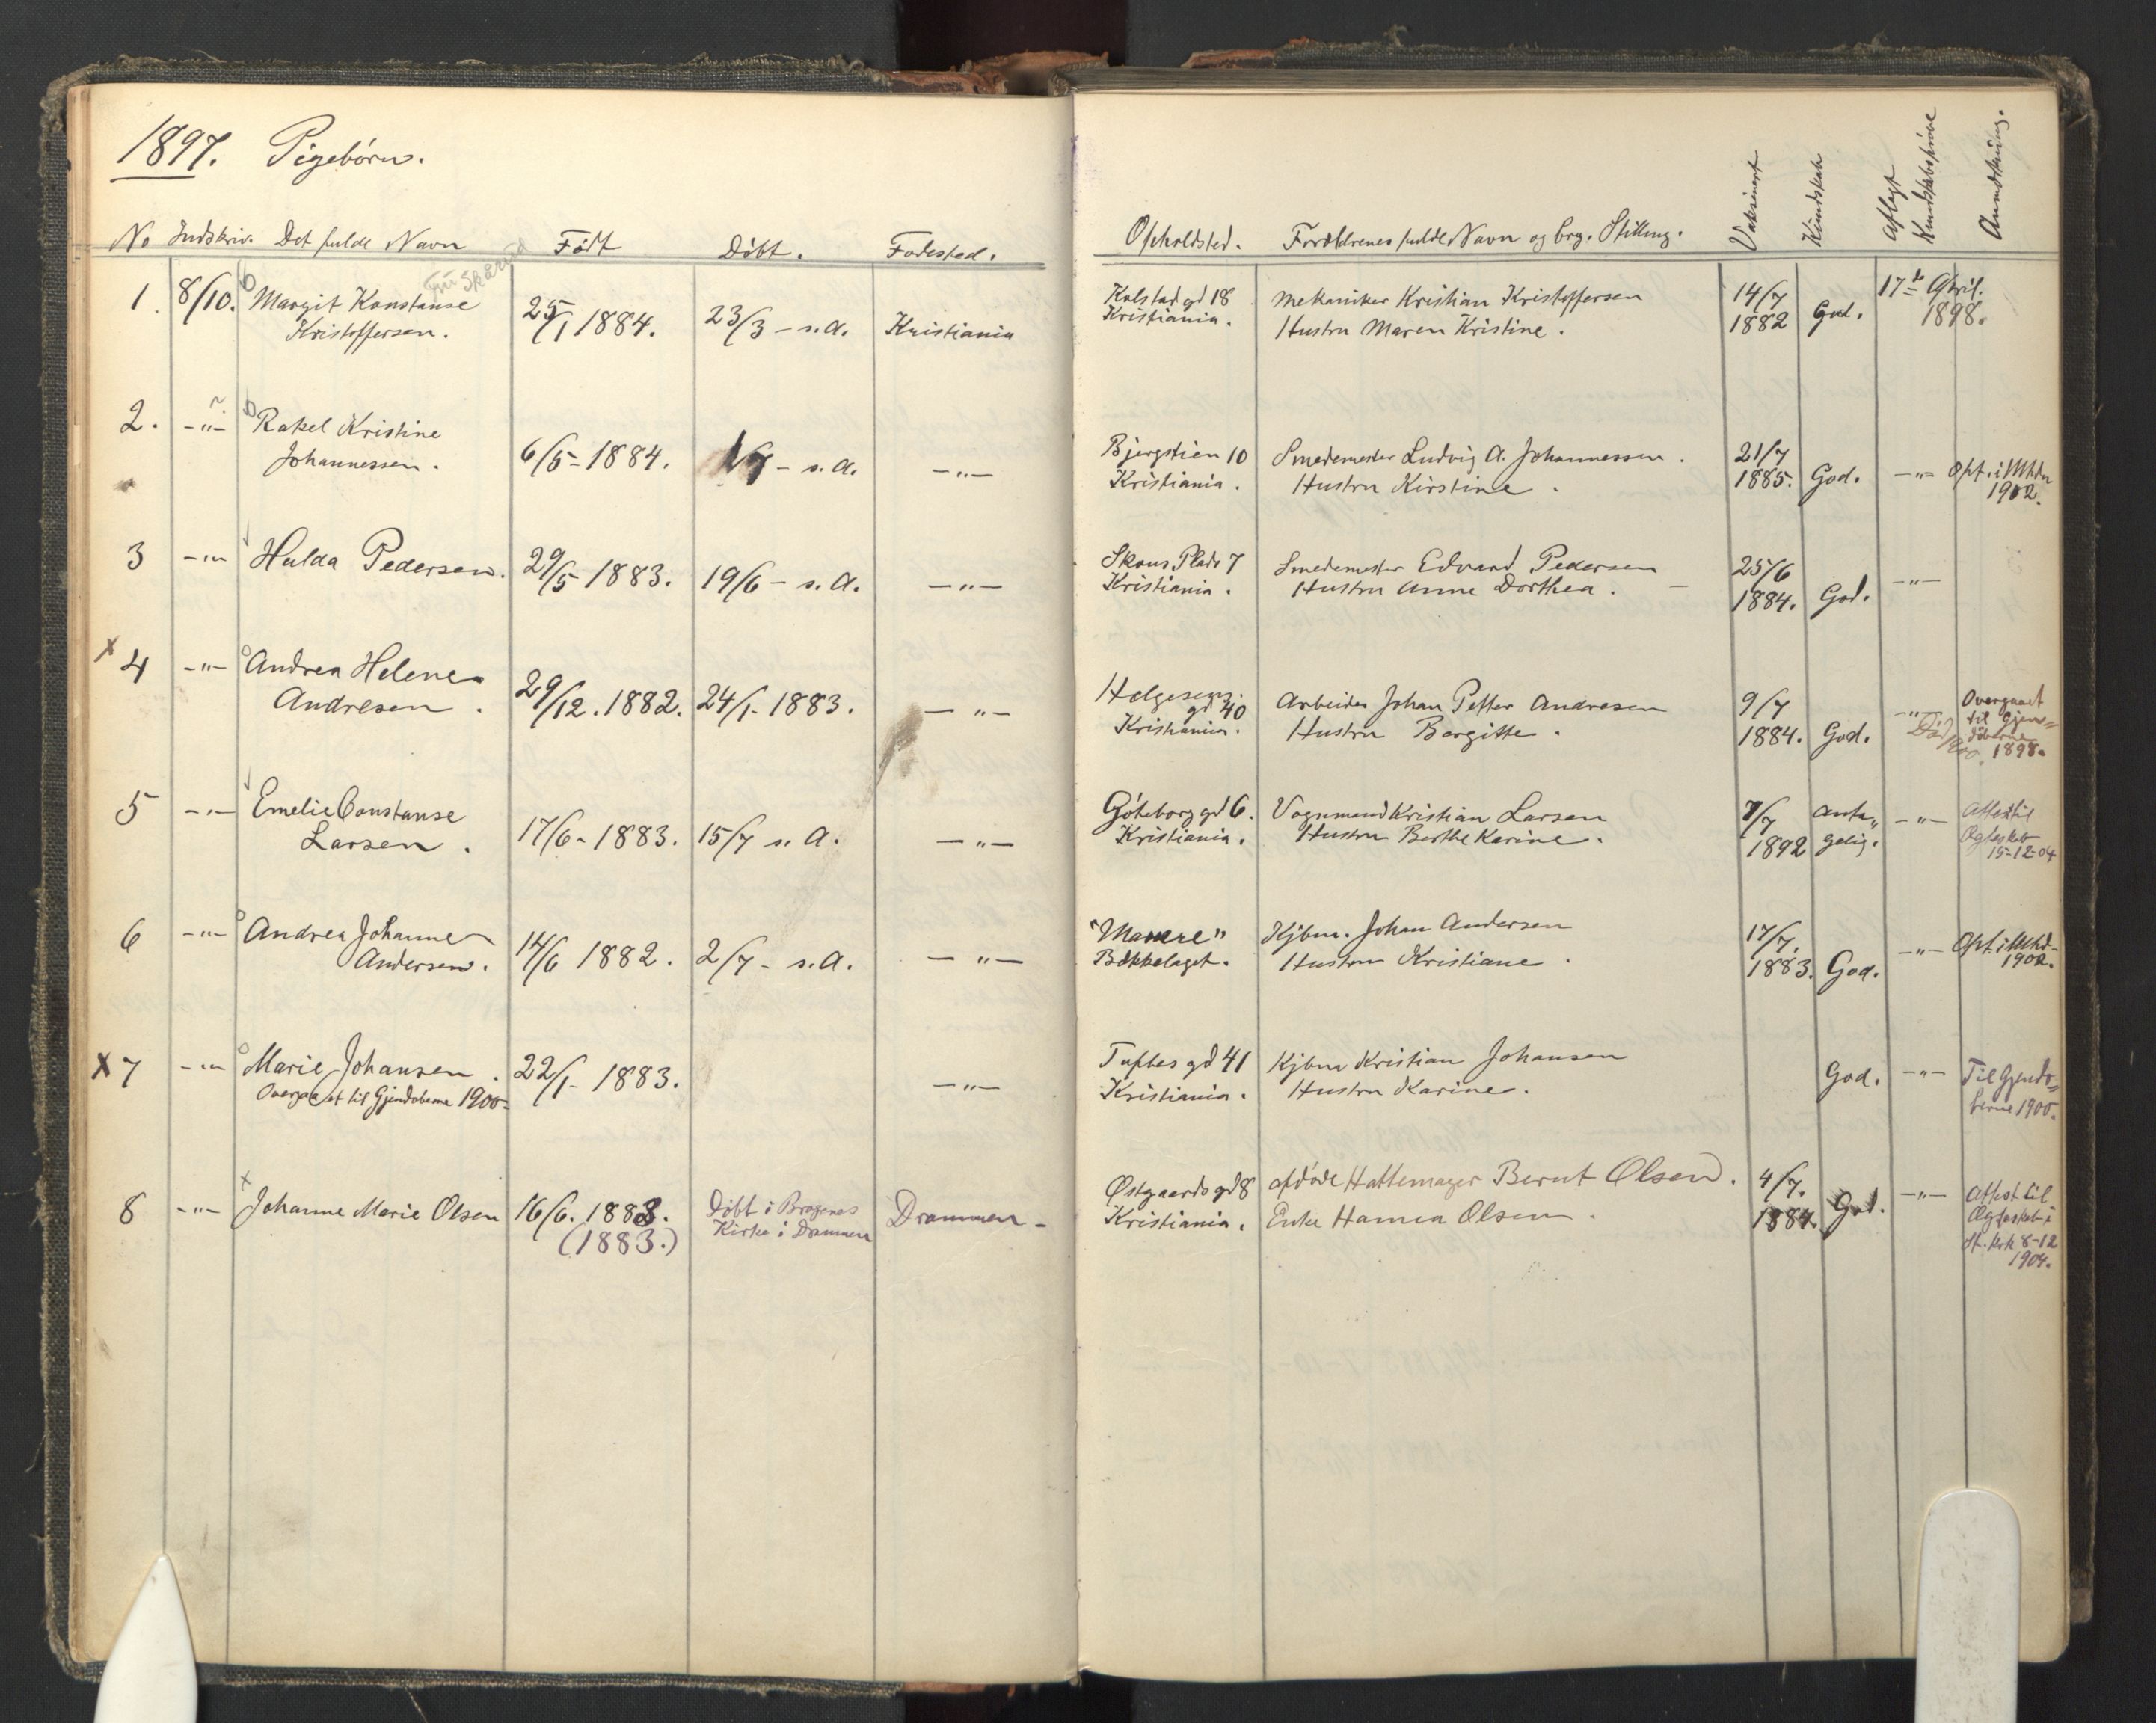 1897. Pigebörn.
No Indskriv. Det fulde Navn Født Döbt. Fødested.
Opholdsted. Forældrenes fulde Navn og brg. Stilling. Vaksinert Kundskab Aflagt Kundskabspröve Anmærkning.
Fru Skårud
1. 8/10. Margit Konstanse 25/1 1884. 23/3 - s. a. Kristiania
Kristoffersen.
Kalstad gd 18 Mekaniker Kristian Kristoffersen 14/7 17de April.
Kristiania. Hustru Maren Kristine. 1882 God. 1898.
2. -"- Rakel Kristine
Johannessen. 6/5 - 1884. - s. a. -"-
Bjergstien 10 Smedemester Ludvig A. Johannessen. 21/7
Kristiania. Hustru Kirstine. 1885. God. -"- Opt. i Mhdn
1902.
3 -"- Hulda Pedersen. 29/5 1883. 19/6 - s. a. -"-
Skous Plads 7 Smedemester Edvard Pedersen 25/6 -"-
Kristiania. Hustru Anne Dorthea. 1884. God.
x 4 -"- Andrea Helene
Andresen. 29/12. 1882. 24/1 - 1883. -"-
Helgesens
gd 40 Arbeider Johan Petter Andresen 9/7 -"- Overgaaet
Kristiania. Hustru Borgitte. 1884. God. til Gjen=
döberne
1898.
Död
1900.
5 -"- Emelie Constanse
Larsen. 17/6 - 1883. 15/7 s. a. -"-
Göteborg gd 6. Vognmand Kristian Larsen 7/7 anta„ -"- Attest til
Kristiania. Hustru Berthe Karine. 1892 gelig. Ægteskab
15-12-04
6 -"- Andrea Johanne
Andersen. 14/6 1882. 2/7 - s. a. -"-
"Marere" Kjbm. Johan Andersen 17/7. -"- Opt. i Mhd-
Bækkelaget. Hustru Kristiane. 1883. God. 1902.
x 7 -"- Marie Johansen. 22/1 - 1883. -"-
Overgaaet til Gjendøberne 1900.
Tuftes gd 41 Kjbm Kristian Johansen God. -"- Til Gjendö=
Kristiania. Hustru Karine. berne 1900.
8 -"- Johanne Marie Olsen 16/6. 1883. Döbt i Bragenes Drammen -
(1883.) Kirke i Drammen
Østgaards gd 8 afdöde Hattemager Bernt Olsen. 4/7. -"- Attest til
Kristiania. Enke Hanna Olsen. 1884. God. Ægteskab i
St. Krk 8-12
1904.